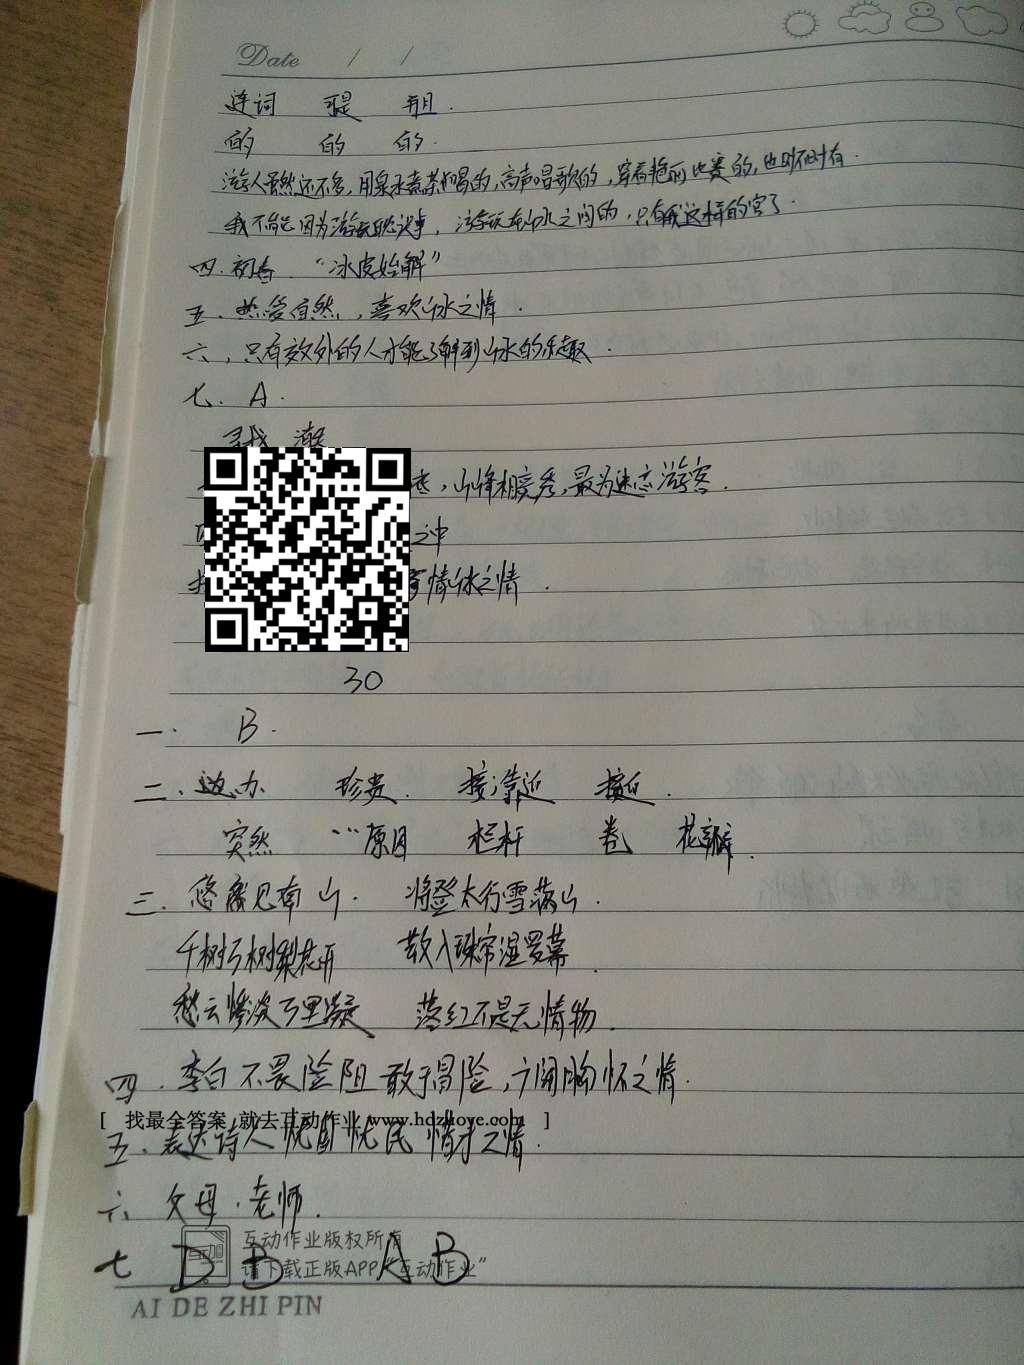 Date / /
连词 可是 并且.
的 的 的.
游人虽然还不多,用泉水煮茶喝的,高声唱歌的,穿着艳丽的,也时时有.
我不能因为游玩耽误事,游玩在山水之间的,只有我这样的官了.
四.初春.“冰皮始解”
五.热爱自然,喜欢山水之情.
六,只有效外的人才能了解到山水的乐趣.
七. A.
寻找
,山峰相竞秀,最为迷恋游客.
之中
情
30
一. B.
二.边、办 珍贵. 接;靠近 接近.
突然 原因 栏杆 卷 花瓣.
三.悠然见南山. 将登太行雪满山.
千树万树梨花开 散入珠帘湿罗幕.
愁云惨淡万里凝 落红不是无情物.
四.李白不畏险阻敢于冒险,广阔胸怀之情.
[ 找最全答案 就去互动作业 www.hdzuoye.com ]
五.表达诗人忧国忧民情才之情.
六、父母.老师.
互动作业版权所有
七 D B A B
请下载正版APP“互动作业”
AI DE ZHI PIN